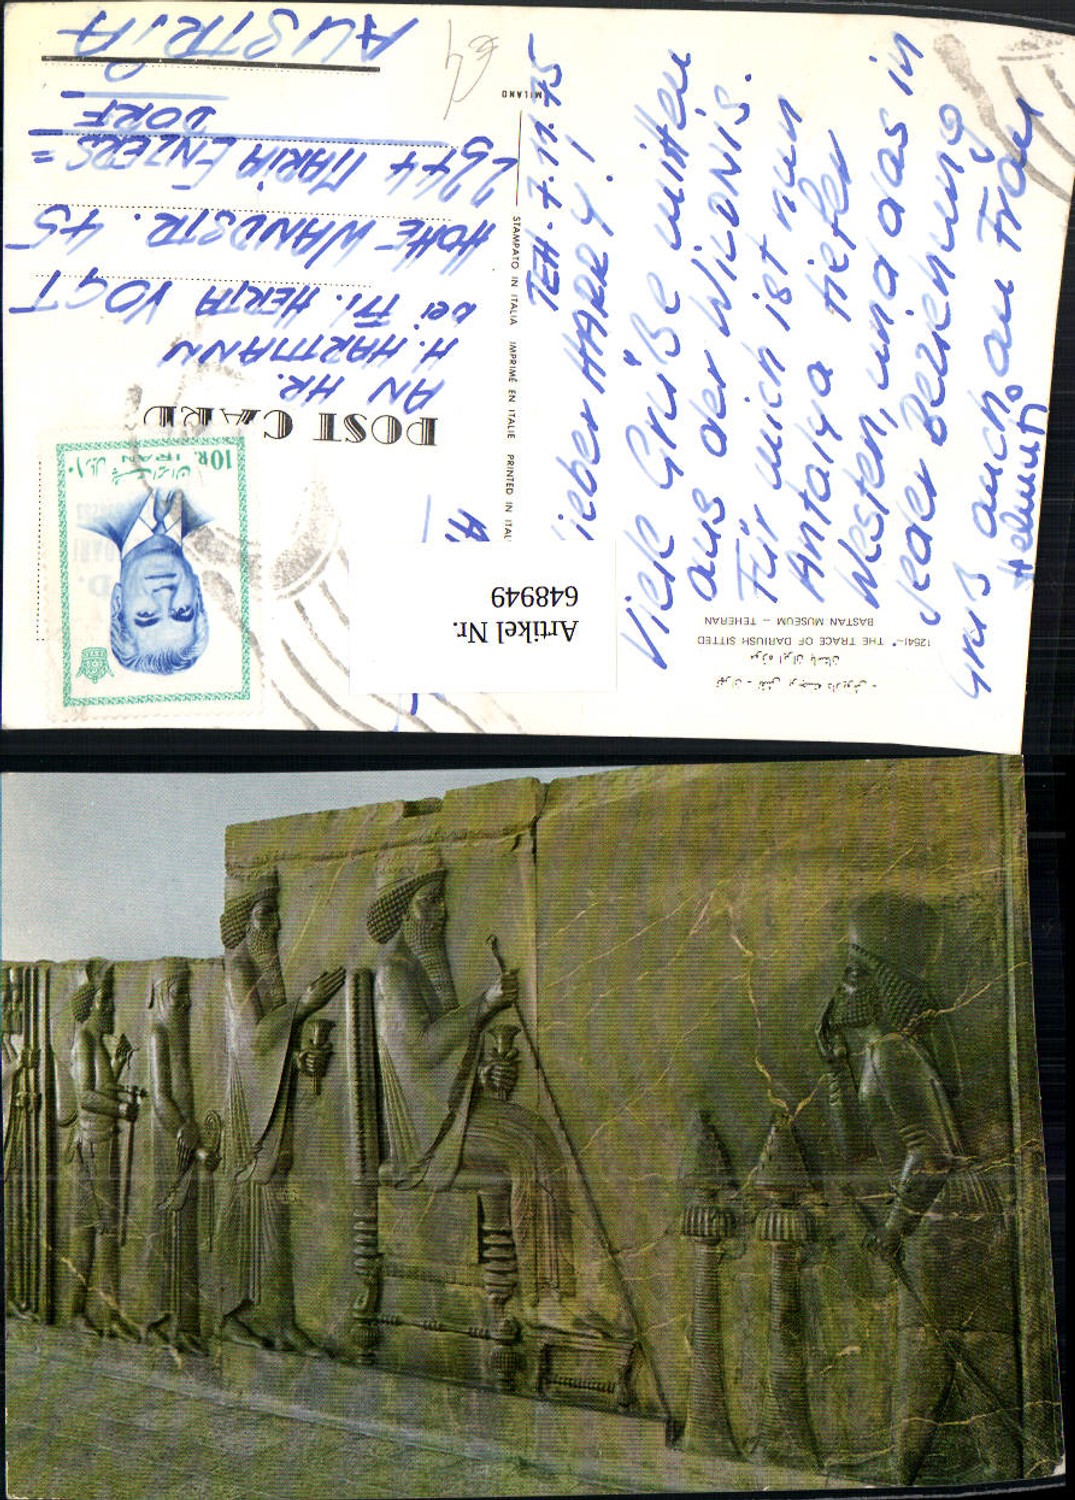 POST CARD
AN HR.
H. HARTMANN
bei Fr. HERTA VOGT
HOHE WANDSTR. 45
2344 MARIA ENZERS=
DORF
AUSTRIA
10R.
IRAN
STAMPATO IN ITALIA IMPRIMÉ EN ITALIE PRINTED IN ITAL
MILANO
Artikel Nr.
648949
TEH - 7.11.75
ieber HARRY!
Viele Grüße mitten
aus der WILDNIS.
Für mich ist nun
Antalya tiefer
Westen, und das in
jeder Beziehung
Gruß auch an Frau
Helmut
12541-" THE TRACE OF DARIUSH SITTED
BASTAN MUSEUM – TEHERAN
موزه ایران باستان